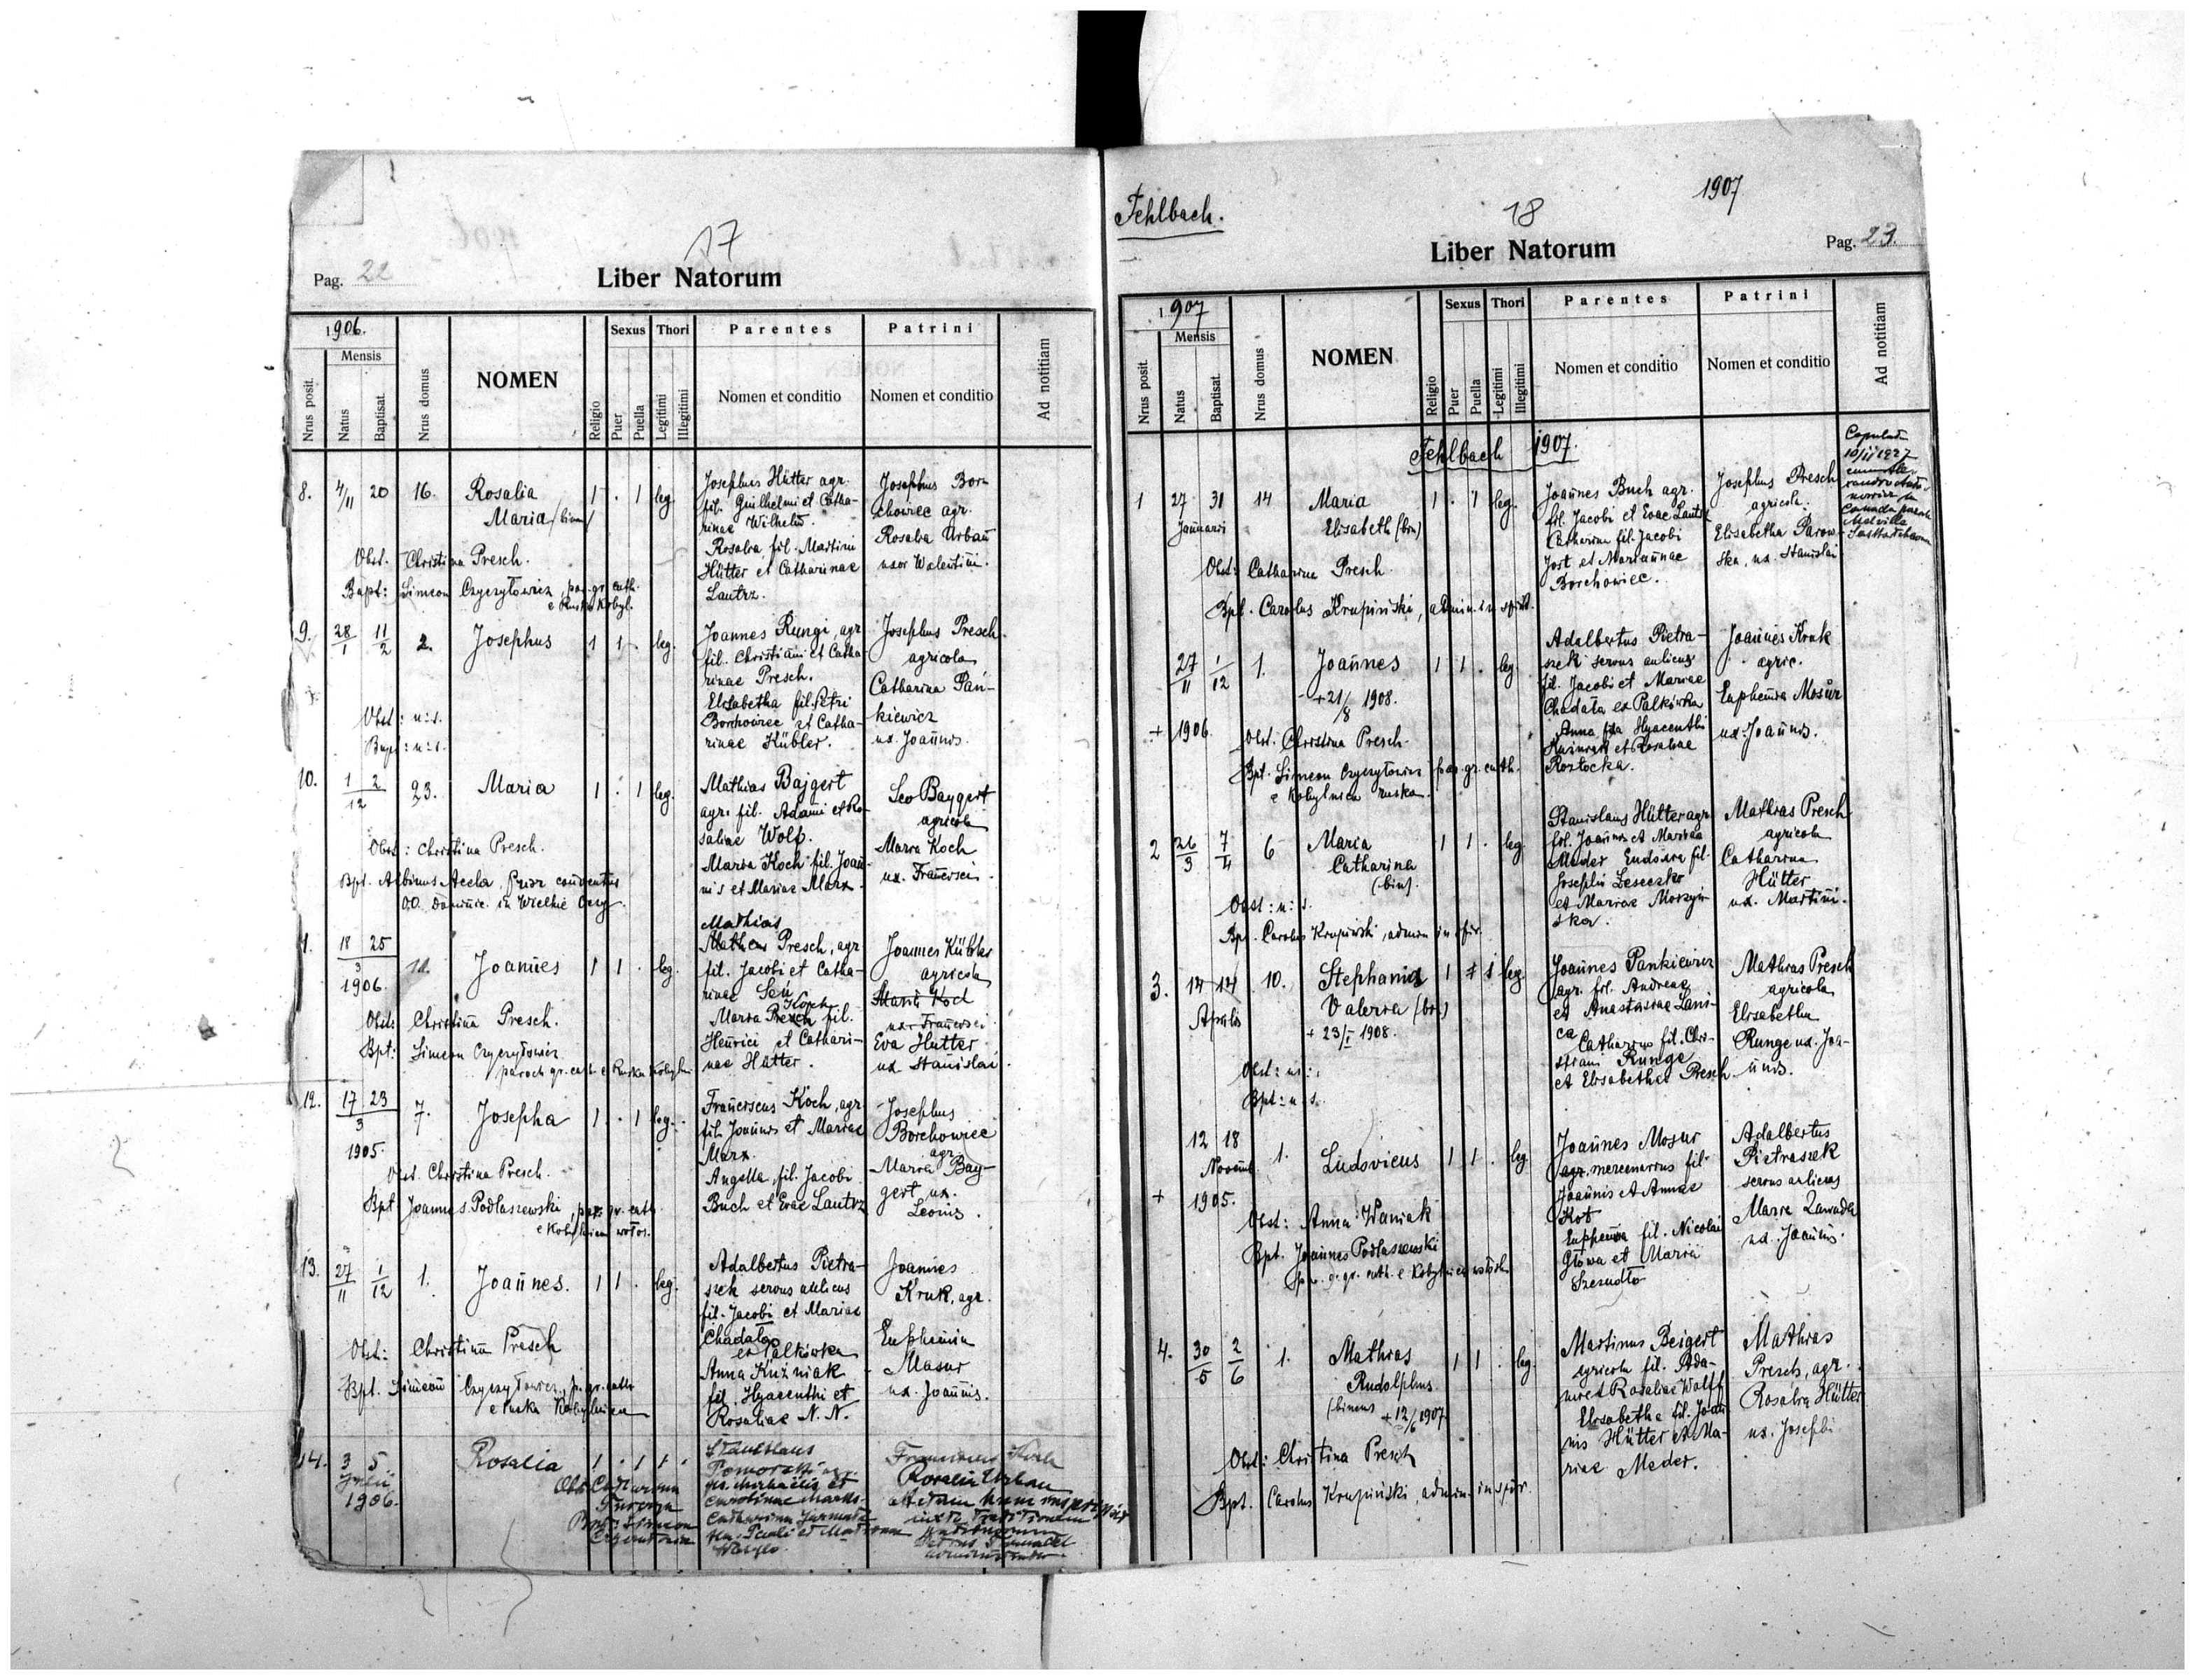 17
Pag. 22
Liber Natorum
1906.
Mensis
Nrus posit.
Natus
Baptisat.
Nrus domus
NOMEN
Religio
Sexus
Puer
Puella
Thori
Legitimi
Illegitimi
Parentes
Nomen et conditio
Patrini
Nomen et conditio
Ad notitiam
8. 4/11 20 16. Rosalia 1 . 1 leg. Josephus Hütter agr. Josephus Bor-
Maria /bin/ fil. Guilhelmi et Catha- chowiec agr.
rinae Wilhelm. Rosalia Urban
Obst. Christina Presch. Rosalia fil. Martini uxor Valentini.
Hütter et Catharinae
Bapt: Simeon Czyczyłowicz, par. gr. cath. Lautrz.
e Ruska Kobyl.
9. 28/1 11/2 2. Josephus 1 1 . leg. Joannes Rungi, agr Josephus Presch
fil. Christiani et Catha- agricola
rinae Presch. Catharina Pan-
Elisabetha fil. Petri kiewicz
Obst: u: s. Borchowiec et Catha- ux. Joannis.
Bapt: u: s. rinae Kübler.
10. 1 2/12 23. Maria 1 . 1 leg. Mathias Bajgert Leo Baygert
agr. fil. Adami et Ro- agricola
saliae Wolf. Maria Koch
Obst: Christina Presch. Maria Koch fil. Joan- ux. Francisci.
nis et Mariae Marx.
Bpt. Albinus Acela, Prior conventus
OO. Dominic. in Wielkie Oczy.
Mathias
11. 18 25/3 11. Joannes 1 1 . leg. Matheus Presch, agr Joannes Kübler
1906. fil. Jacobi et Catha- agricola
rinae Maria Koch
Koch
Obst: Christina Presch. Maria Presch fil. ux. Francisci
Bpt: Simeon Czyczyłowicz Henrici et Cathari- Eva Hutter
paroch gr. cath e Ruska Kobylni nae Hütter. ux Stanislai.
12. 17 23/3 7. Josepha 1 . 1 leg. Franciscus Koch, agr Josephus
1905. fil. Joannis et Mariae Borchowiec
Marx. agr.
Obst. Christina Presch. Angella, fil. Jacobi Maria Bay-
Bpt Joannes Podlaszewski, par. gr. cath. Buch et Evae Lautrz gert ux.
e Kobylnica wołos. Leonis.
13. 27/11 1/12 1. Joannes. 1 1 . leg. Adalbertus Pietra- Joannes
szek servus aulicus Kruk, agr.
fil. Jacobi et Mariae
Obst: Christina Presch Chadała Euphemia
ex Palkówka
Anna Kuźniak Masur
Bpt. Simeon Czyczyłowicz, p. gr. cath fil. Hyacenthi et ux. Joannis.
e ruska Kobylnica Rosaliae N. N.
14. 3 5 Rosalia 1 . 1 1 . Stanislaus
Julii Rosalia Urban
1906.
Fehlbach.
18
1907
Liber Natorum
Pag. 23.
1907
Mensis
Nrus posit.
Natus
Baptisat.
Nrus domus
NOMEN
Religio
Sexus
Puer
Puella
Thori
Legitimi
Illegitimi
Parentes
Nomen et conditio
Patrini
Nomen et conditio
Ad notitiam
Fehlbach 1907.
1 27 31 14 Maria 1 . 1 leg. Joannes Buch agr. Josephus Presch
Januarii Elisabeth (bin) fil. Jacobi et Evae Lautrz agricola.
Catharina fil. Jacobi Elisabetha Parow-
Obst: Catharina Presch Jost et Mariannae ska, ux. Stanislai
Borchowiec.
Bpt. Carolus Krupiński, admin. in spirit.
27/11 1/12 1. Joannes 1 1 . leg Adalbertus Pietra- Joannes Kruk
+ 21/8 1908. szek servus aulicus agric.
fil. Jacobi et Mariae Euphemia Mosur
+ 1906. Chadała ex Palkówka ux. Joannis.
Obst. Christina Presch. Anna fila Hyacenthi
Bpt. Simeon Czyczyłowicz par. gr. cath. et Rosaliae
e Kobylnica ruska Rostocka.
2 26/3 7/4 6 Maria 1 1 . leg. Stanislaus Hütter agr. Mathias Presch
Catharina fil. Joannis et Mariae agricola
(bin). Meder Eudoxia fil. Catharina
Obst: u: s. Josephi Leseczko Hütter
Bp. Carolus Krupiński, admin in spir. et Mariae ux. Martini.
3. 14 14 10. Stephania leg. Joannes Pankiewicz Mathias Presch
Aprilis Valeria (bin) agr. fil. Andreae agricola
+ 23/I 1908. et Anastasiae Elisabetha
Catharina fil. Chri- Runge ux. Joa-
Obst: u: s. stiani Runge nnis.
Bpt: u: s. et Elisabethae Presch
12 18 1. Ludovicus 1 1 . leg Joannes Mosur Adalbertus
Novemb agr. mercenarius fil. Pietraszek
+ 1905. Joannis et Annae servus aulicus
Obst: Anna Waniak Kot Maria Zawada
Bpt. Joannes Podlaszewski Euphemia fil. Nicolai ux. Joannis.
Głowa et Maria
Szemdło
4. 30/5 2/6 1. Mathias 1 1 . leg. Martinus Beigert Mathias
Rudolphus agricola fil. Ada- Presch, agr.
(binom + 12/6 1907 mi et Rosaliae Wolff Rosalia Hütter
Elisabetha fil. Joan- ux. Josephi
Obst: Christina Presch nis Hütter et Ma-
riae Meder.
Bpt. Carolus Krupiński, admin. in spir.